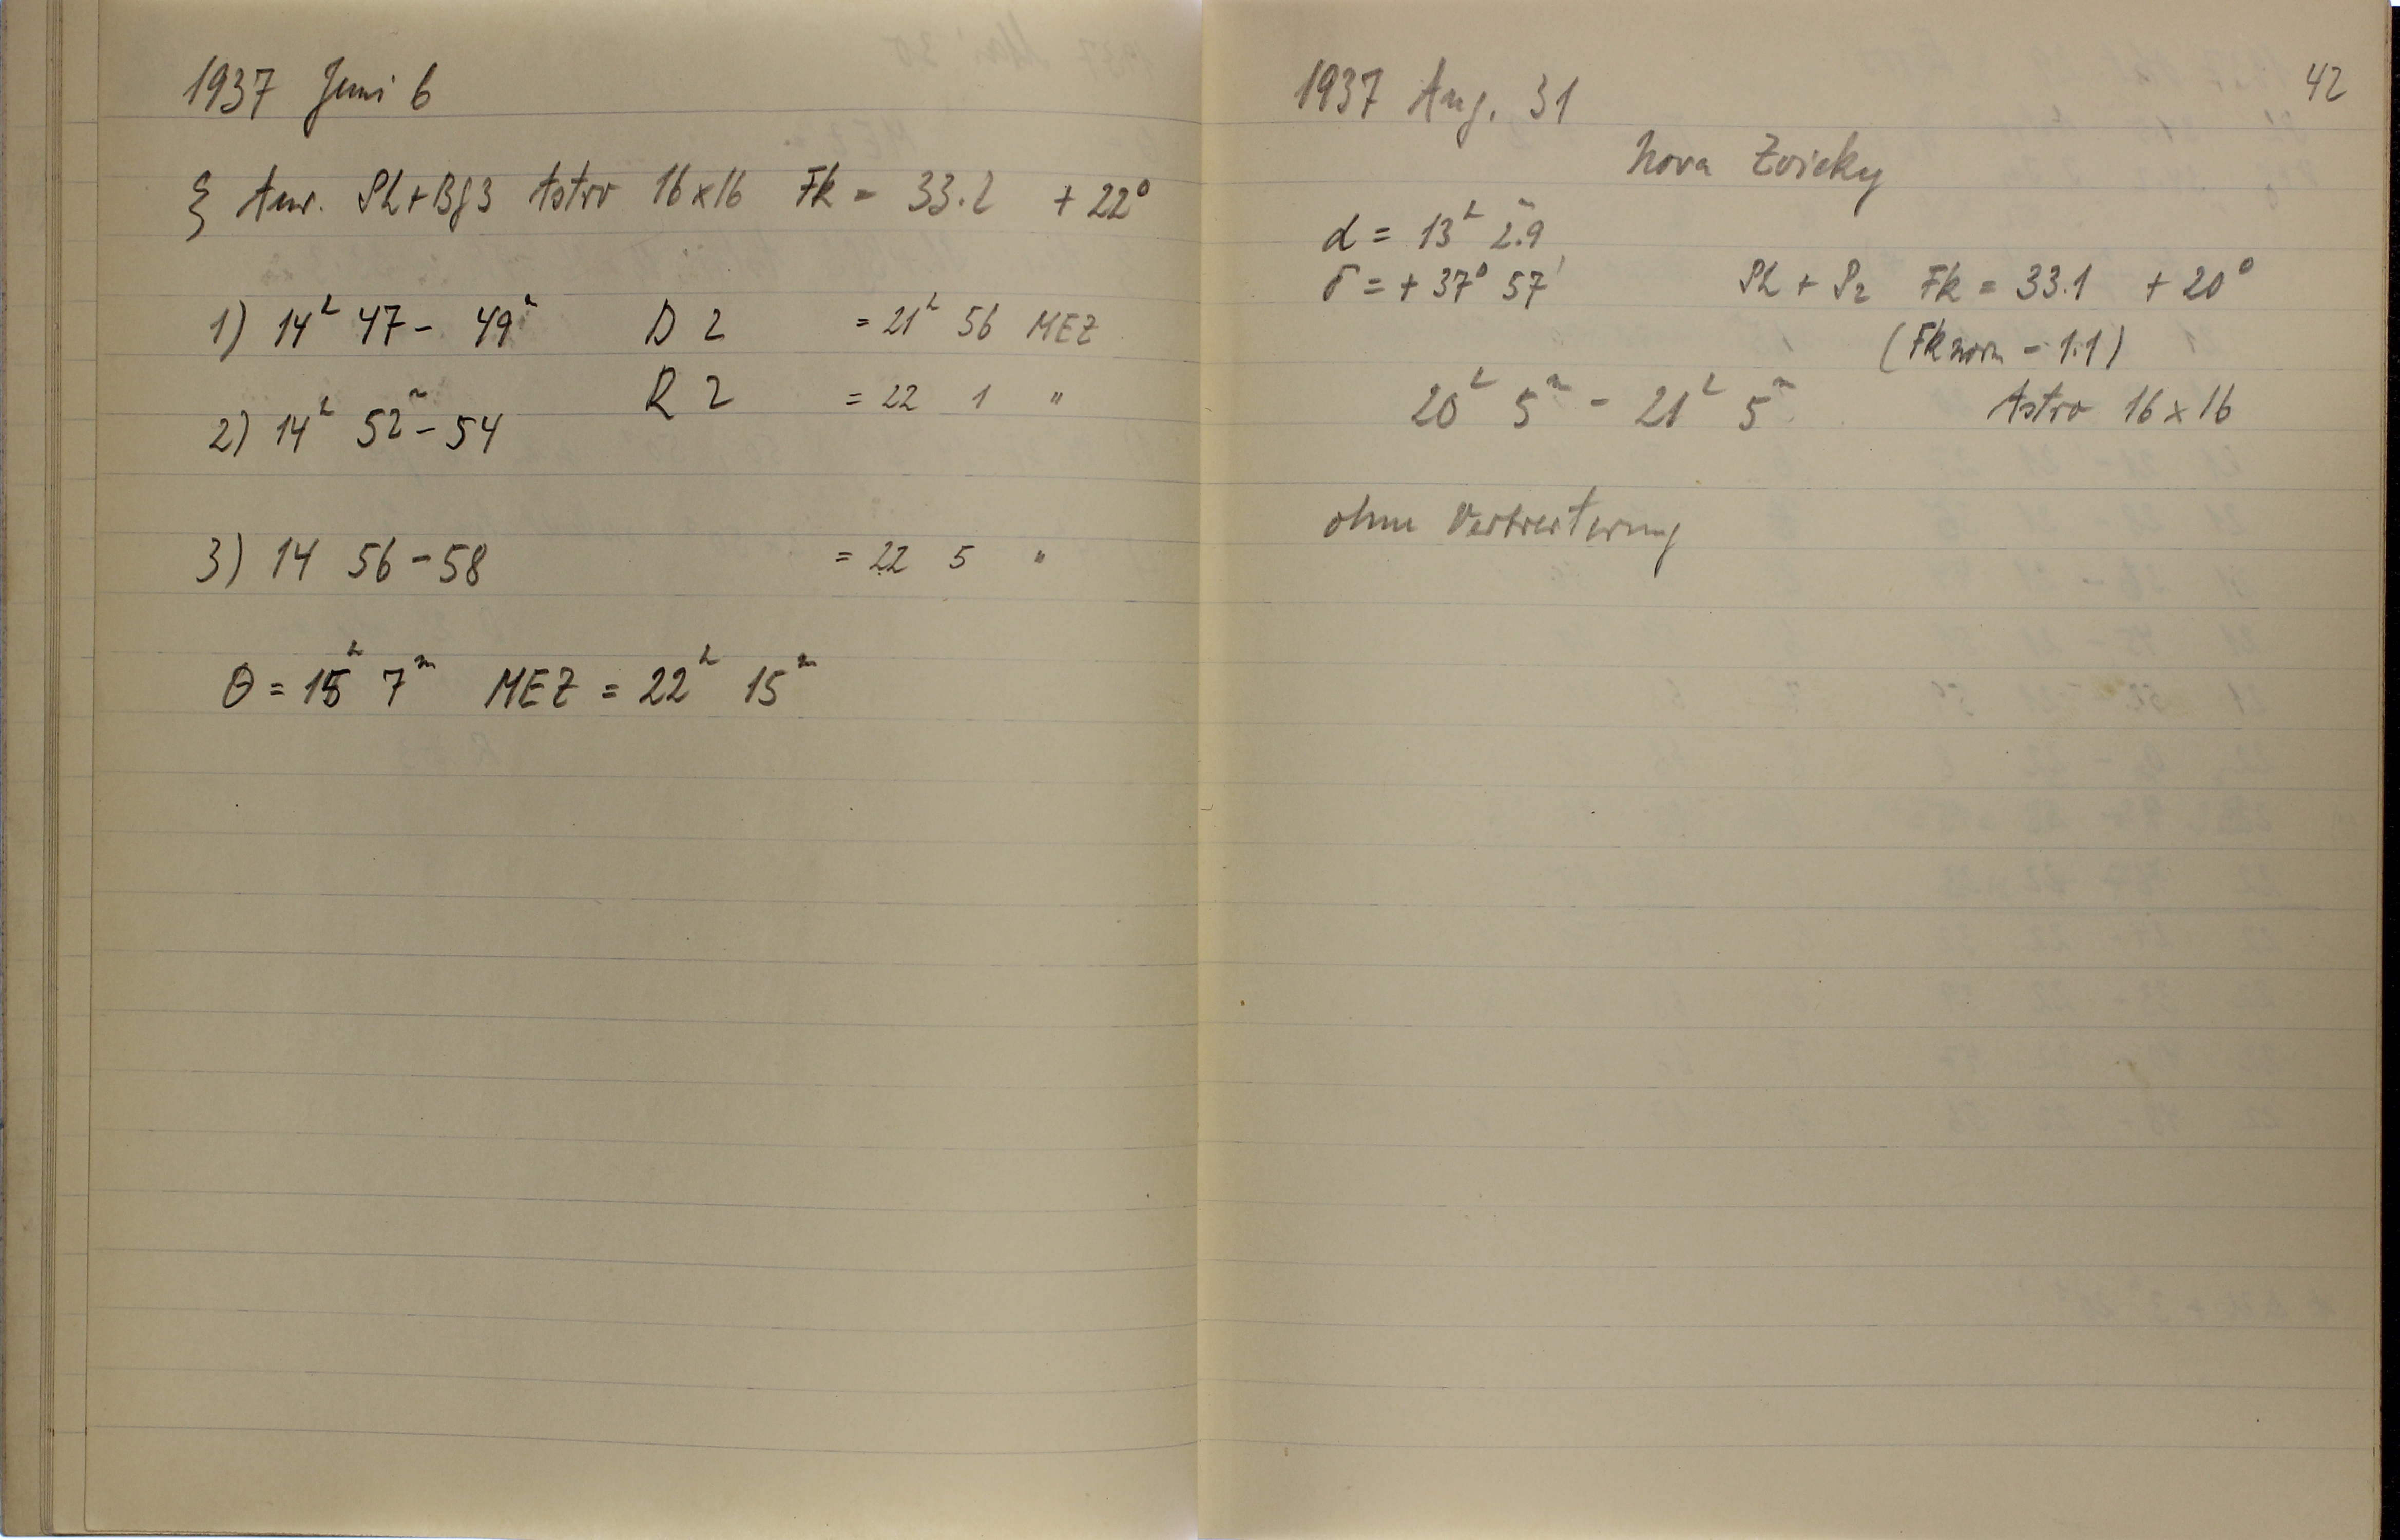 1937 Juni 6
ξ Aur. Ph+Bg3 Astro 16×16 Fk = 33.2 +22°
1) 14ʰ 47 - 49ᵐ D 2 = 21ʰ 56 MEZ
R 2 = 22 1 "
2) 14ʰ 52ᵐ - 54
3) 14 56 - 58 = 22 5 "
θ = 15ʰ 7ᵐ MEZ = 22ʰ 15ᵐ
42
1937 Aug. 31
Nova Zwicky
α = 13ʰ 2ᵐ.9
δ = +37° 57' Ph + P2 Fk = 33.1 +20°
(Fk norm - 1.1)
20ʰ 5ᵐ - 21ʰ 5ᵐ Astro 16×16
ohne Verbreiterung